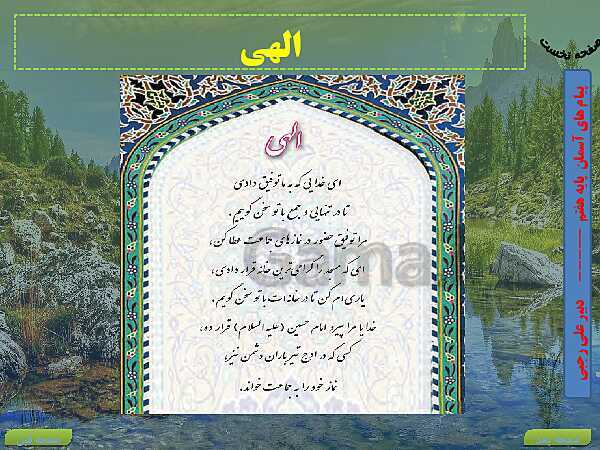 الهی
صفحه نخست
الهی
ای خدایی که به ما توفیق دادی
تا در تنهایی و جمع با تو سخن گوییم.
مرا توفیق حضور در نمازهای جماعت عطا کن،
ای که مسجد را گرامی‌ترین خانه قرار دادی،
یاری‌ام کن تا در خانه‌ات با تو سخن گویم.
خدایا مرا پیرو امام حسین (علیه السلام) قرار ده،
کسی که در اوج تیرباران دشمن نیز،
نماز خود را به جماعت خواند.
Gama
پیام های آسمان پایه هفتم ---------- دبیر علی رجبی
صفحه قبل
صفحه بعد